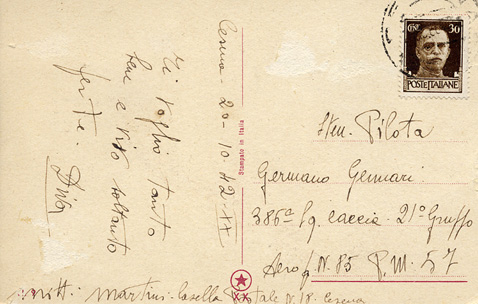 Cesena - 20-10-42-XX
Ti voglio tanto
bene e vivo soltanto
per te. Diva
Stampato in Italia
CENT. 30
POSTE ITALIANE
Sten. Pilota
Germano Gennari
386ª Sq. Caccia - 21° Gruppo
Aerop. N. 85 P. M. 57
mitt: Martini - Casella Postale N. 18 - Cesena
XX